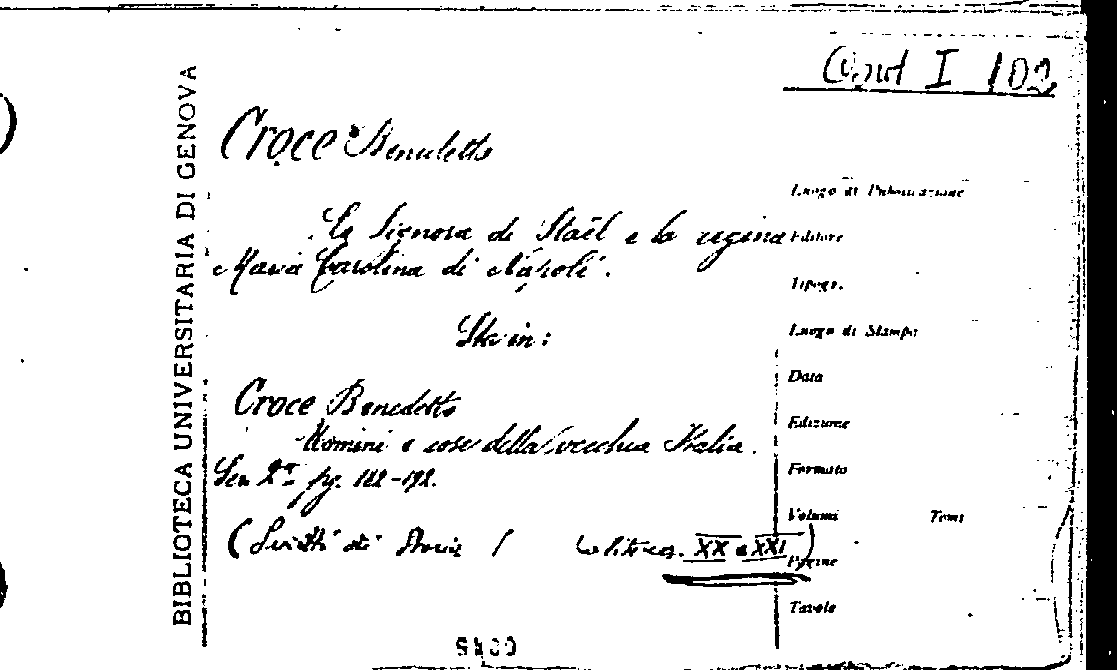 Cont I 102
BIBLIOTECA UNIVERSITARIA DI GENOVA
Croce Benedetto
La Signora di Staël e la regina
Maria Carolina di Napoli.
Sta in:
Croce Benedetto
Uomini e cose della vecchia Italia.
Serie 2ª pg. 182-192.
(Scritti di Storia XX e XXI)
Luogo di Pubblicazione
Editore
Tipogr.
Luogo di Stampa
Data
Edizione
Formato
Volumi Tomi
Pagine
Tavole